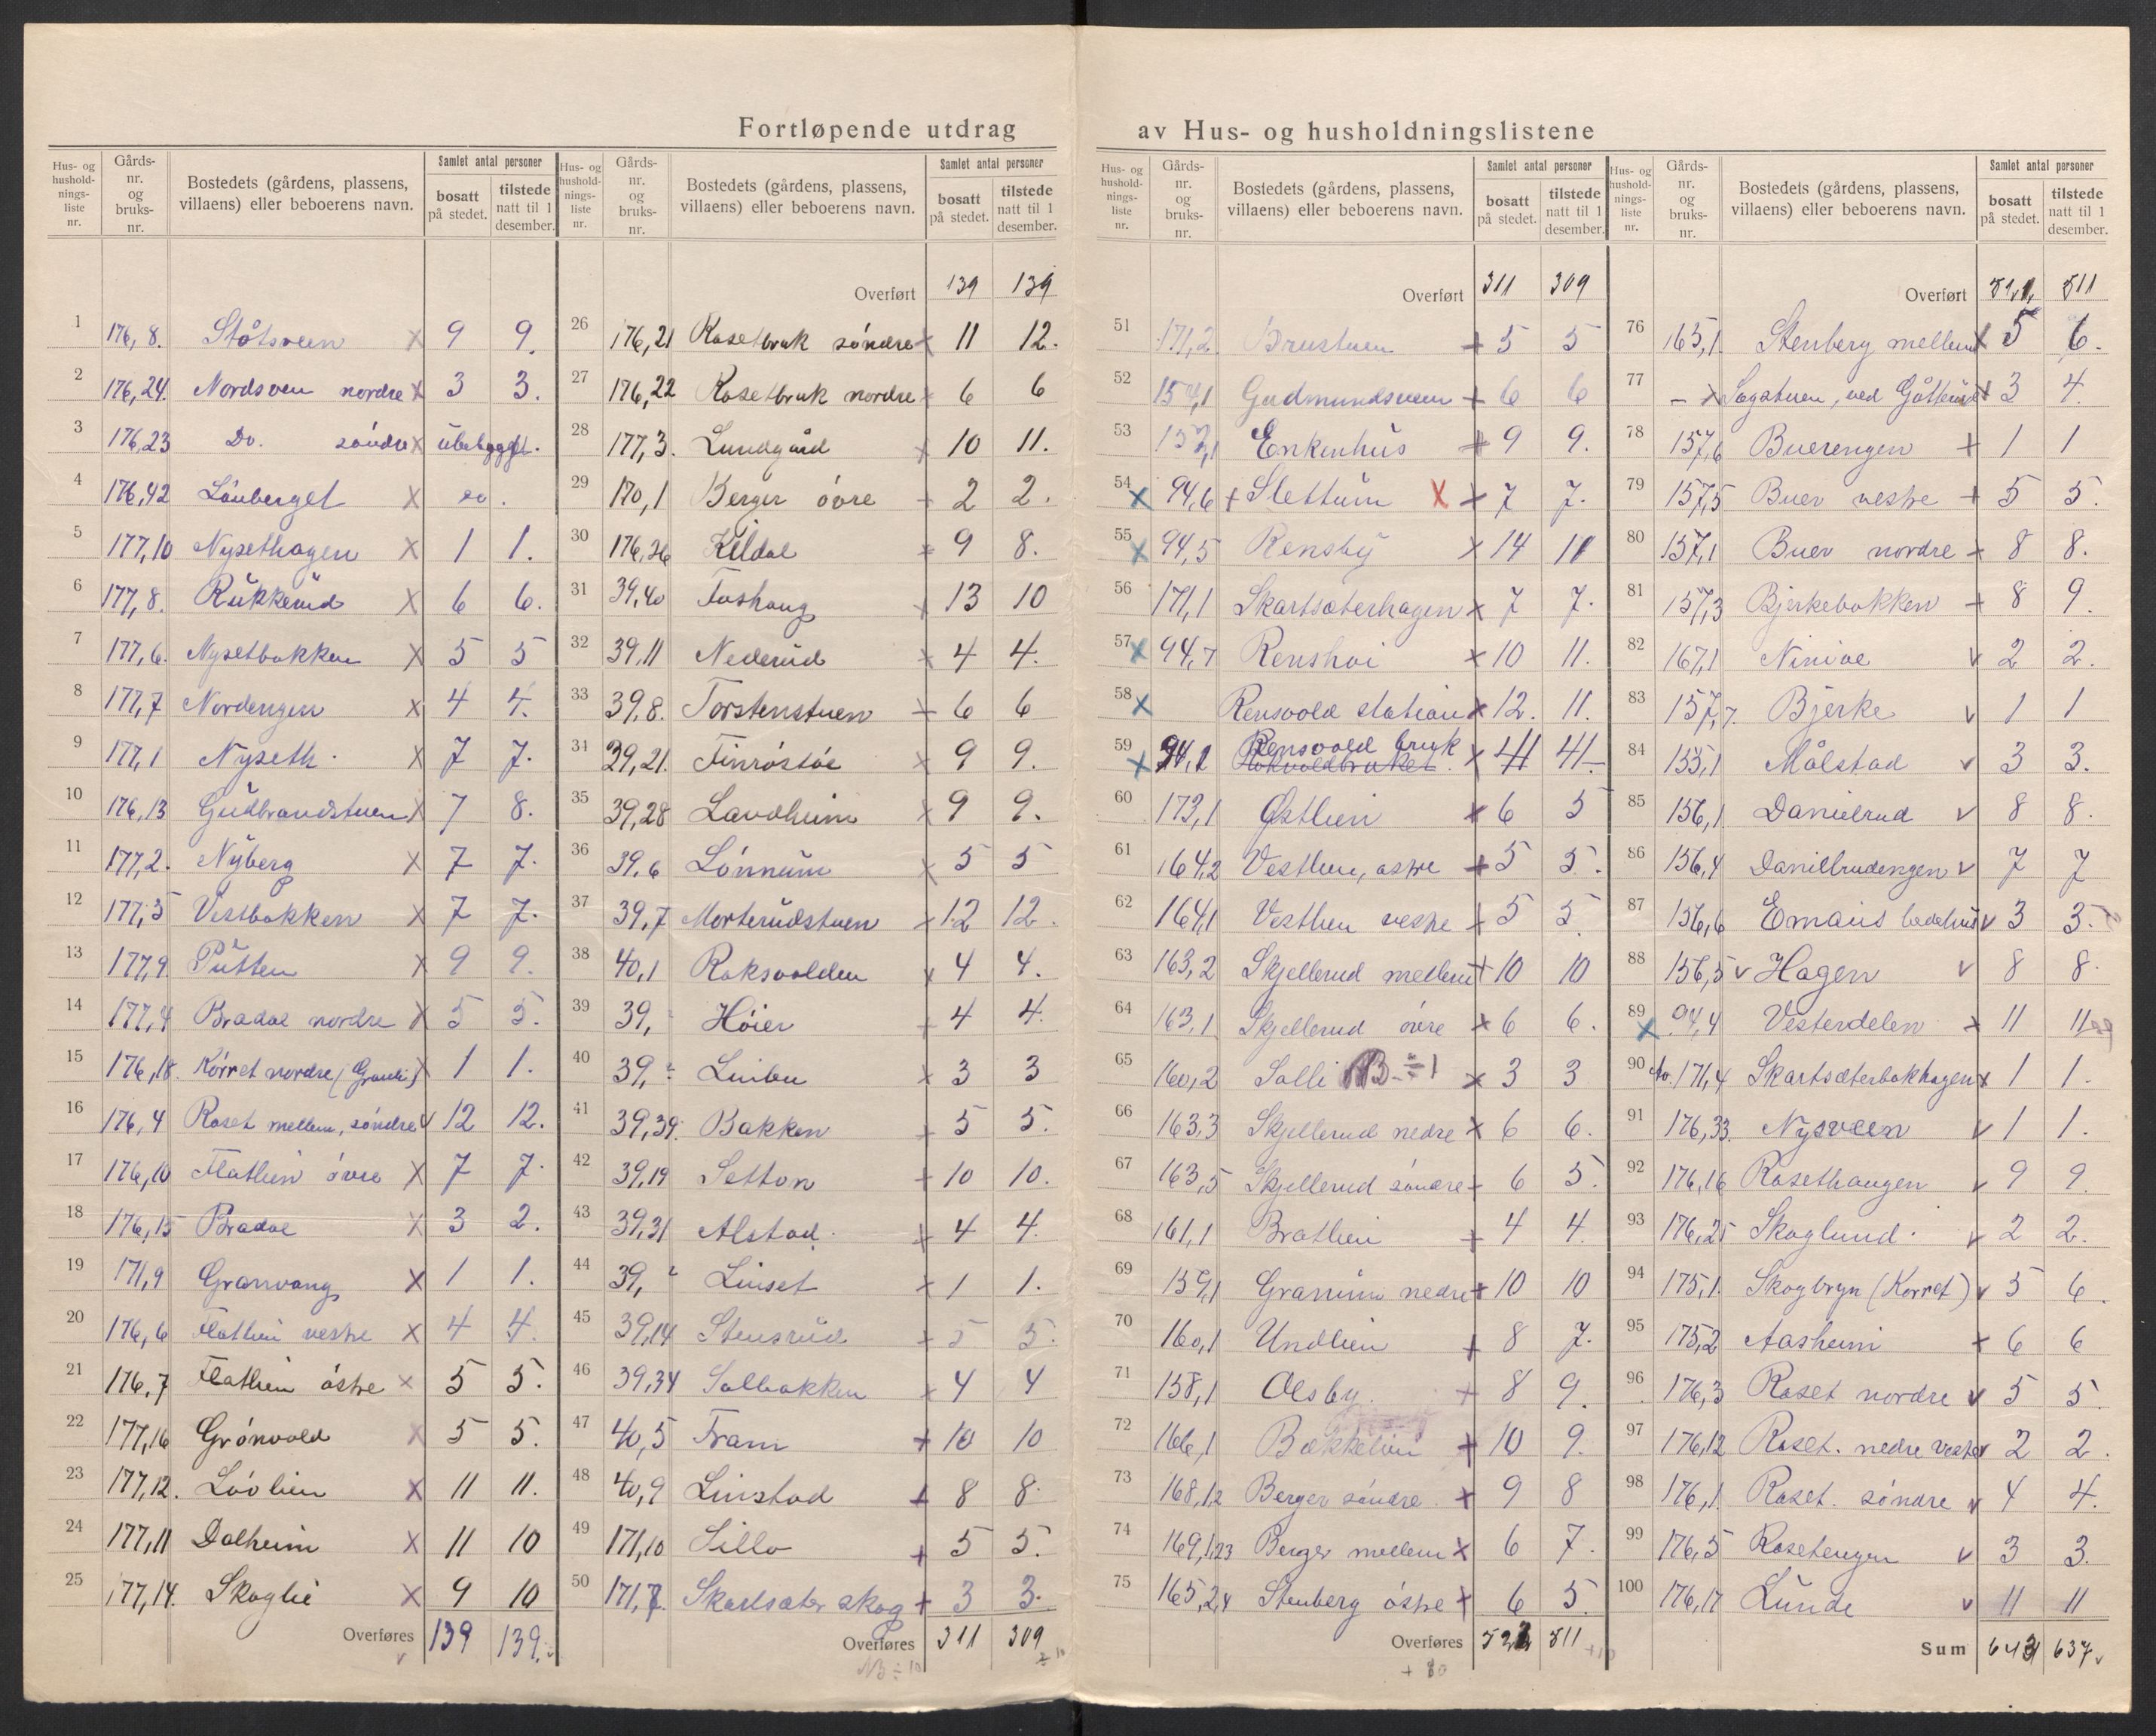 Fortløpende utdrag av Hus- og husholdningslistene
Hus- og husholdningsliste nr. | Gårdsnr. og bruksnr. | Bostedets (gårdens, plassens, villaens) eller beboerens navn. | Samlet antal personer bosatt på stedet. | tilstede natt til 1 desember.
1 176,8. Stötsveen x 9 9.
2 176,24. Nordsven nordre x 3 3.
3 176,23 Do. söndre x ubebygget.
4 176,42 Lönberget x do.
5 177,10 Nysethagen x 1 1.
6 177,8. Rukkerud x 6 6.
7 177,6. Nysetbakken x 5 5
8 177,7 Nordengen x 4 4.
9 177,1 Nyseth. x 7 7.
10 176,13 Gudbrandstuen x 7 8.
11 177,2. Nyberg x 7 7.
12 177,5 Vestbakken x 7 7.
13 177,9. Putten x 9 9.
14 177,4 Bradal nordre x 5 5.
15 176,18. Körret nordre (Granli) x 1 1.
16 176,4 Roset mellem, söndre v 12 12.
17 176,10 Flatlien övre x 7 7.
18 176,15 Bradal x 3 2.
19 171,9 Granvang x 1 1.
20 176,6 Flatlien vestre x 4 4.
21 176,7 Flatlien östre x 5 5.
22 177,16 Grönvold x 5 5.
23 177,12. Lövlien x 11 11.
24 177,11 Dalheim x 11 10
25 177,14. Skoglie x 9 10
Overføres 139 139.
Overført 139 139
26 176,21 Rosetbruk söndre x 11 12.
27 176,22 Rosetbruk nordre x 6 6
28 177,3. Lundgård x 10 11.
29 170,1 Berger övre + 2 2.
30 176,26 Kildal x 9 8.
31 39,40 Foshaug x 13 10
32 39,11 Nederud x 4 4.
33 39,8. Torstenstuen + 6 6
34 39,21. Finröstöe x 9 9.
35 39,28 Landheim x 9 9.
36 39,6 Lönnum x 5 5
37 39,7 Morterudstuen x 12 12.
38 40,1 Roksvolden x 4 4.
39 39,- Höier + 4 4.
40 39,- Linbu x 3 3
41 39,39. Bakken + 5 5.
42 39,19 Setton + 10 10.
43 39,31 Alstad + 4 4.
44 39, Linset x 1 1.
45 39,14 Stensrud + 5 5.
46 39,34 Solbakken x 4 4
47 40,5 Fram + 10 10
48 40,9 Linstad + 8 8.
49 171,10 Lillo + 5 5.
50 171,7. Skartsæter skog + 3 3.
Overføres 311 309
NB ÷ 10 ÷ 10
Overført 311 309
51 171,2. Brustuen + 5 5
52 154,1 Gudmundsveen + 6 6
53 153,1 Enkenhus + 9 9.
54 x 94,6 + Slettum x x 7 7.
55 x 94,5 Rensby x 14 11
56 171,1 Skartsæterhagen x 7 7.
57 x 94,7 Renshoi x 10 11.
58 x Rensvold station x 12. 11.
59 x 94,1 Rensvold bruk x 41 41
60 173,1 Østlien x 6 5
61 164,2 Vestlien, østre + 5 5.
62 164,1 Vestlien vestre + 5 5.
63 163,2 Skjellerud mellem + 10 10
64 163,1 Skjellerud övre x 6 6.
65 160,2 Solli NB ÷ 1 x 3 3
66 163,3 Skjellerud nedre x 6 6.
67 163,5 Skjellerud söndre + 6 5.
68 161,1 Bratlien + 4 4.
69 159,1 Granum nedre + 10 10
70 160,1 Undlien + 8 7.
71 158,1 Olsby. + 8 9.
72 166,1 Bakkelien + 10 9.
73 168,12 Berger söndre x 9 8
74 169,1,23 Berger mellem x 6 7.
75 165,2,4 Stenberg östre + 6 5.
Overføres 523 511
+ 10
Overført 511
76 165,1 Stenberg mellem x 5 6.
77 - x Sagstuen, ved x 3 4.
78 157,6 Buerengen + 1 1
79 157,5 Buer vestre + 5 5.
80 157,1 Buer nordre + 8 8.
81 157,3 Bjerkebakken + 8 9.
82 167,1 Ninive v 2 2.
83 157,7. Bjerke v 1 1
84 155,1 Målstad v 3 3.
85 156,1 Danielrud v 8 8.
86 156,4 Danilrudengen v 7 7
87 156,6 Emaus bedehus v 3 3.
88 156,5 v Hagen v 8 8.
89 x 94,4 Vesterdelen x 11 11
90 171,4 Skartsæterbakhagen x 1 1.
91 176,33. Nysveen v 1 1.
92 176,16 Rosethaugen v 9 9.
93 176,25 Skoglund. v 2 2.
94 175,1. Skogbryn (Korret) v 5 6.
95 175,2 Aasheim x 6 6
96 176,3 Roset nordre v 5 5.
97 176,12 Roset. nedre vestre v 2 2.
98 176,1. Roset. söndre v 4 4.
99 176,5 Rosetengen v 3 3.
100 176,17 Lunde v 11 11
Sum 643 637. v